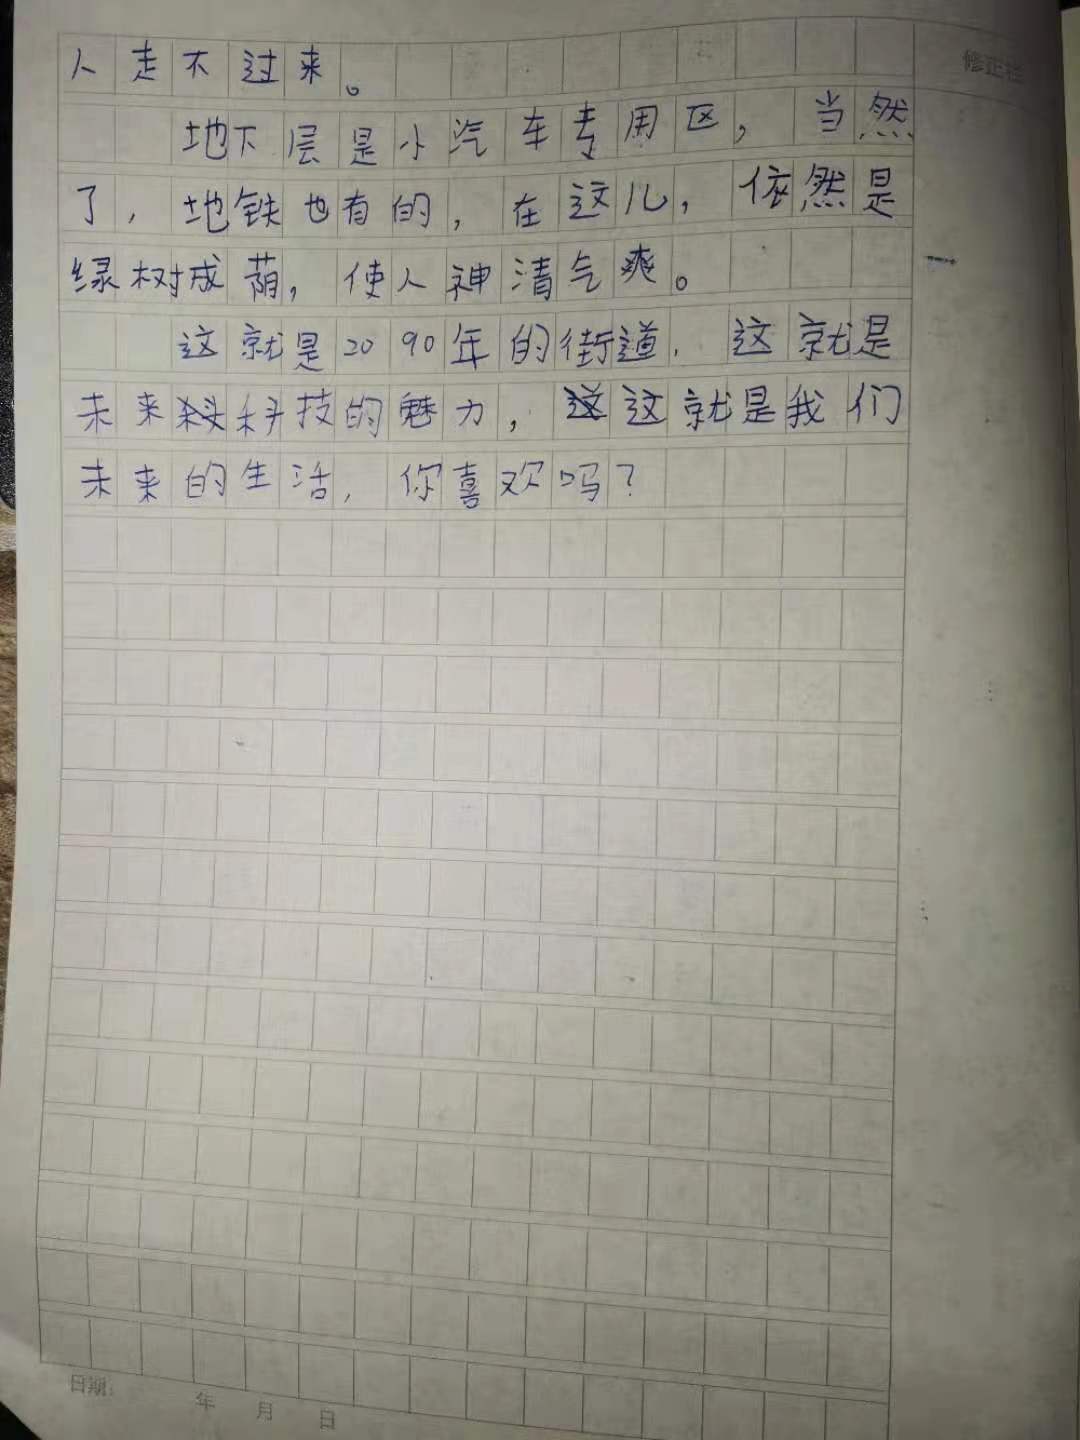 修正栏
人走不过来。
地下层是小汽车专用区，当然
了，地铁也有的，在这儿，依然是
绿树成荫，使人神清气爽。
这就是2090年的街道，这就是
未来科技的魅力，这就是我们
未来的生活，你喜欢吗？
日期： 年 月 日